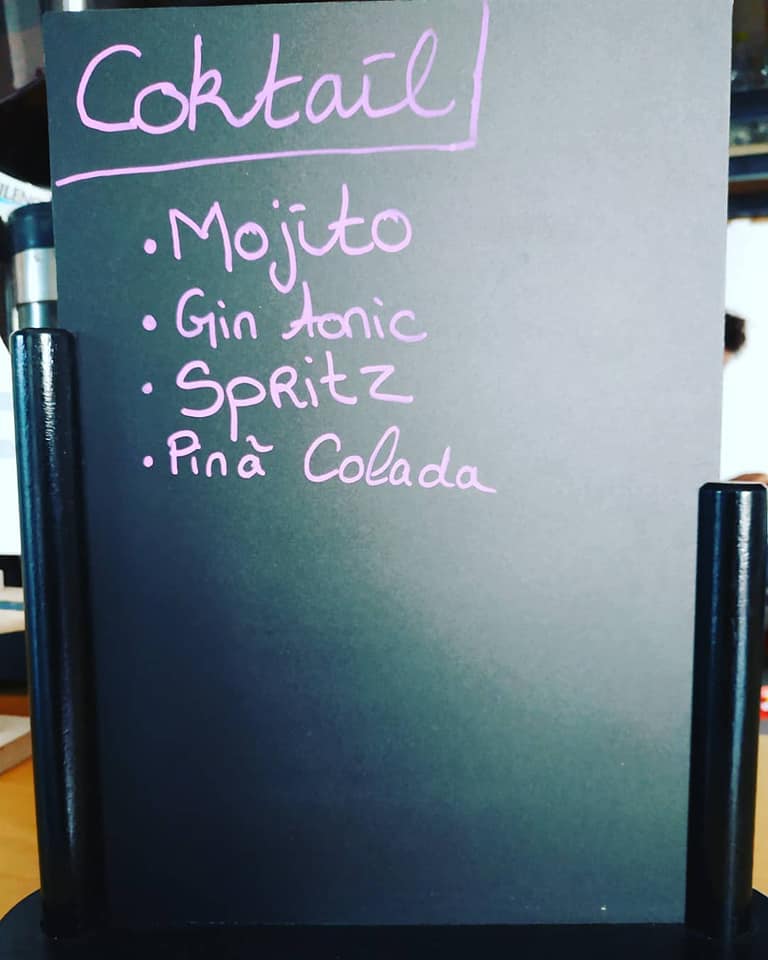 Coktail
• Mojito
• Gin tonic
• Spritz
• Pinã Colada